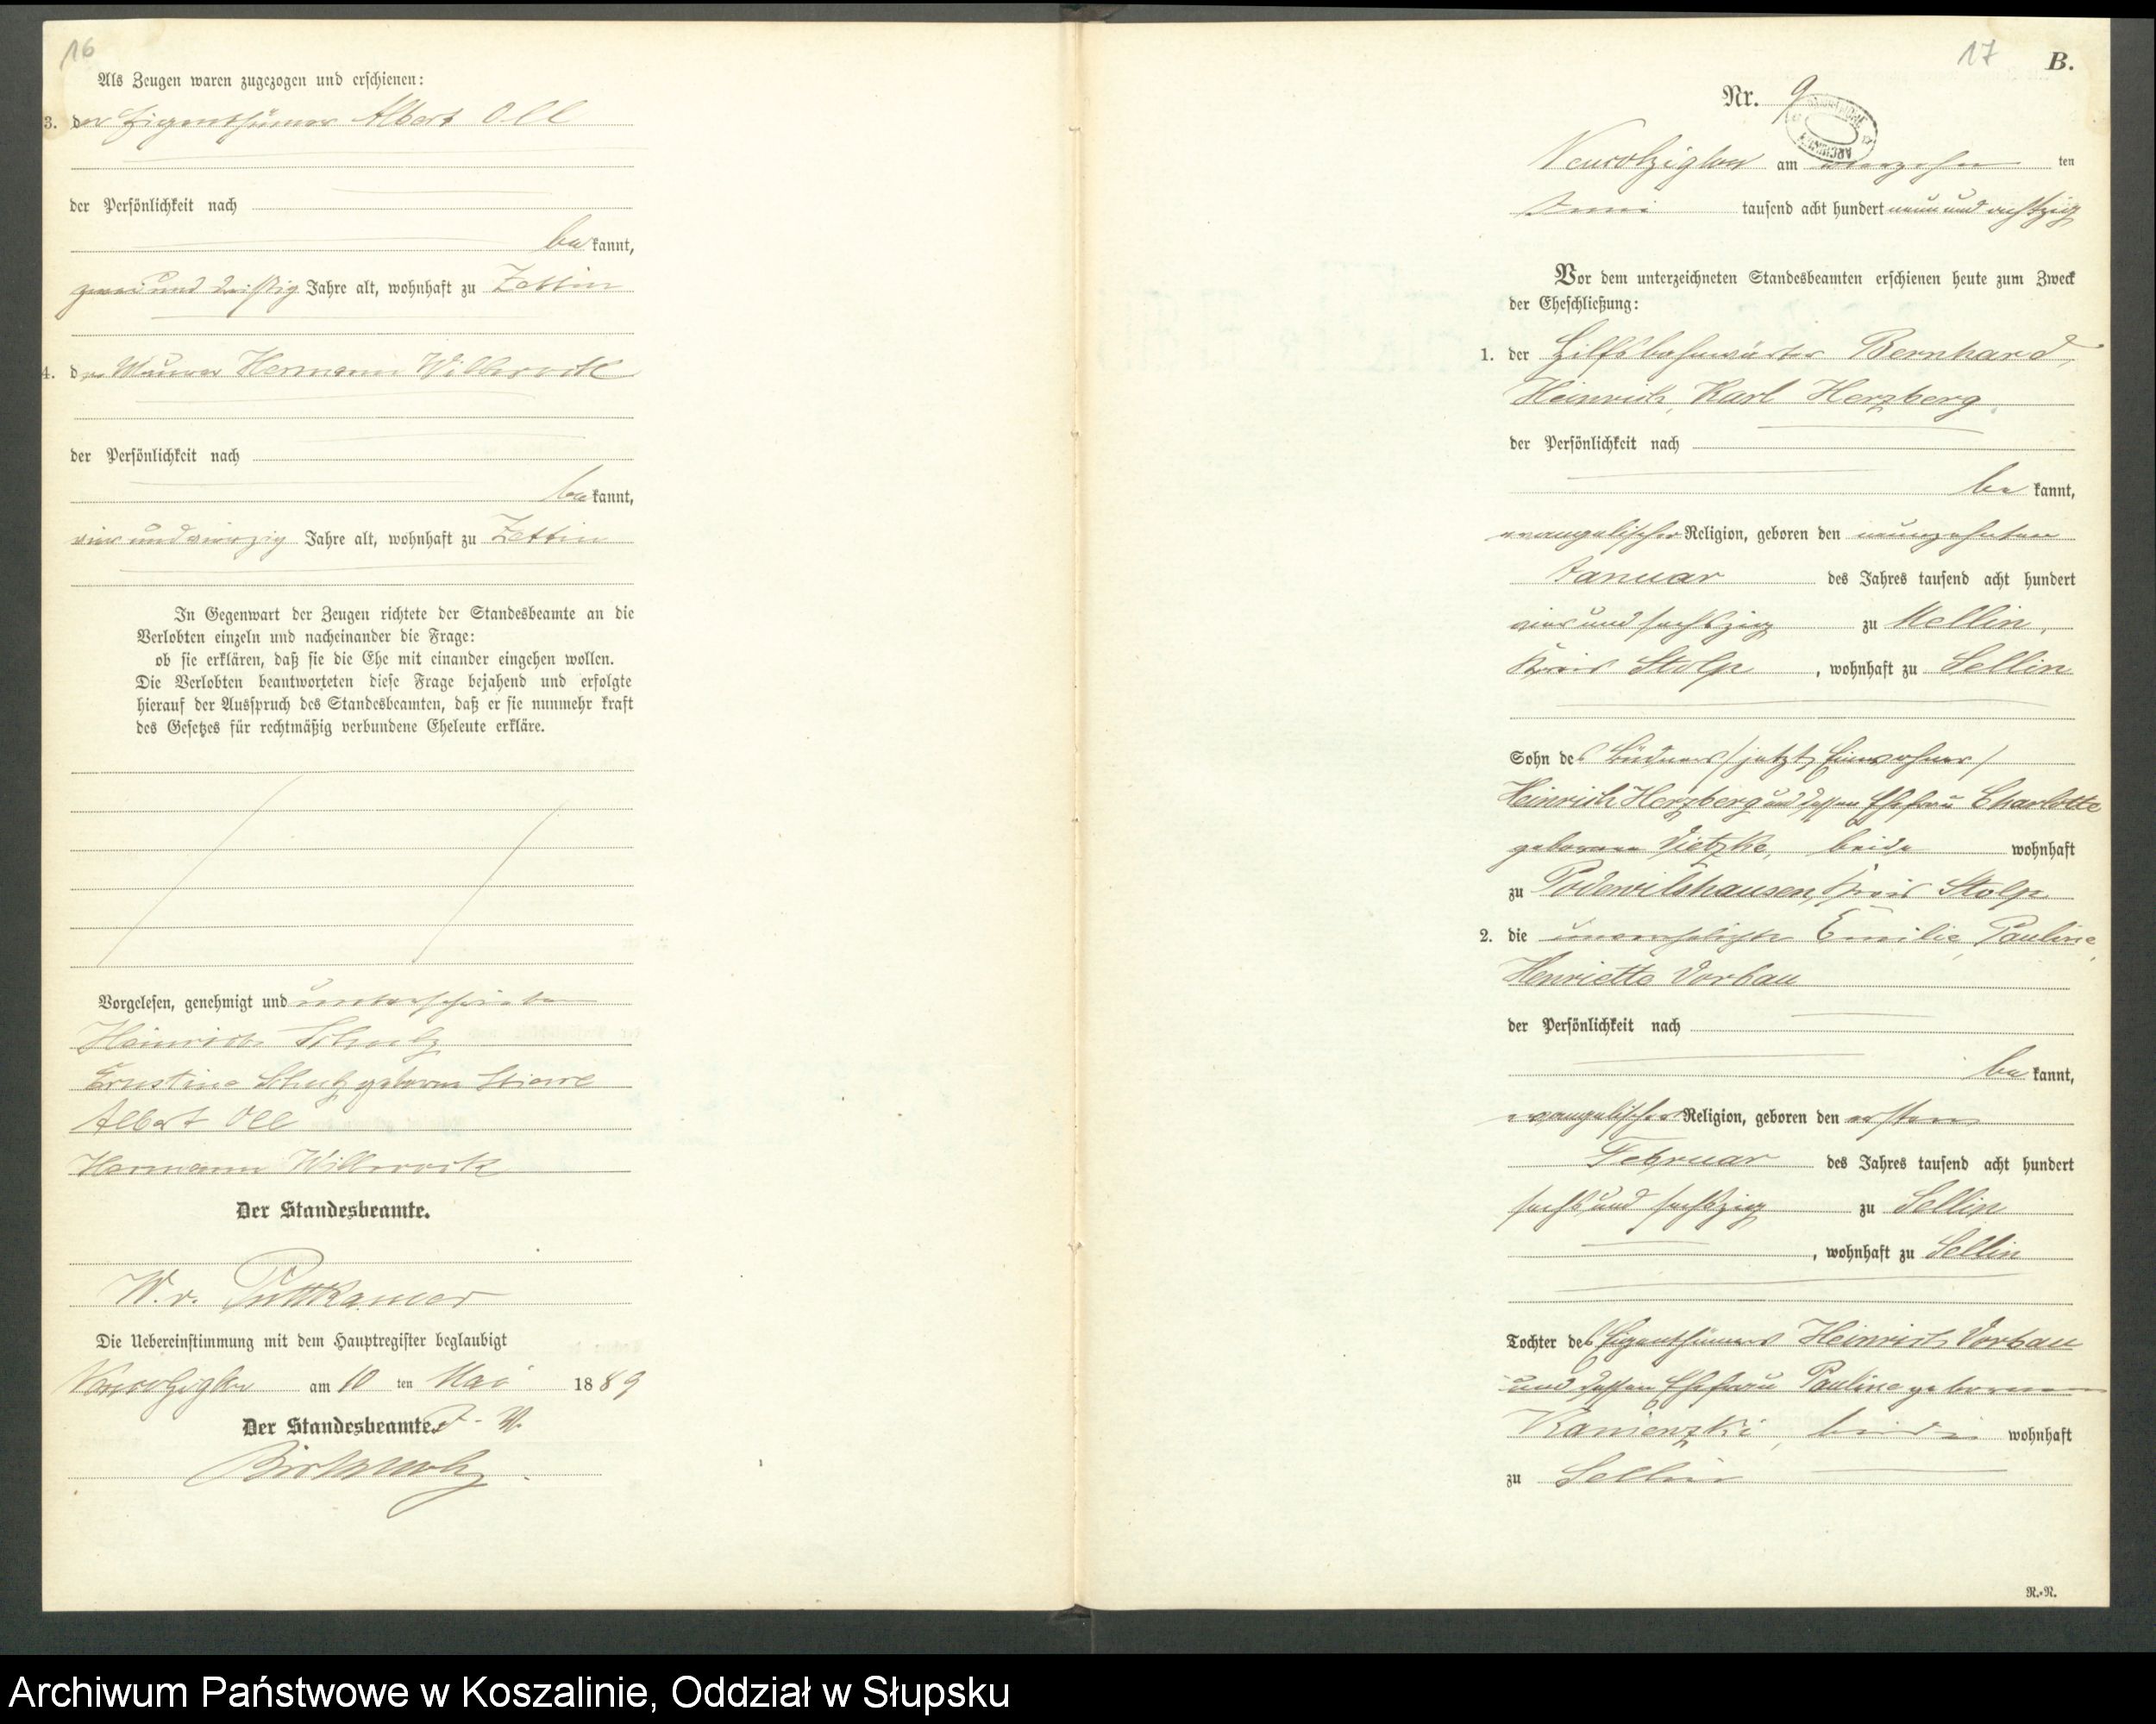 16
Als Zeugen waren zugezogen und erschienen:
3. der Eigenthümer Albert Oll
der Persönlichkeit nach
be kannt,
zwei und dreißig Jahre alt, wohnhaft zu Zettin
4. der Maurer Hermann Willrock
der Persönlichkeit nach
be kannt,
vier und vierzig Jahre alt, wohnhaft zu Zettin
In Gegenwart der Zeugen richtete der Standesbeamte an die
Verlobten einzeln und nacheinander die Frage:
ob sie erklären, daß sie die Ehe mit einander eingehen wollen.
Die Verlobten beantworteten diese Frage bejahend und erfolgte
hierauf der Ausspruch des Standesbeamten, daß er sie nunmehr kraft
des Gesetzes für rechtmäßig verbundene Eheleute erkläre.
Vorgelesen, genehmigt und unterschrieben
Heinrich Schulz
Ernestine Schulz geborne
Albert Oll
Hermann Willrock
Der Standesbeamte.
W. v. Puttkamer
Die Uebereinstimmung mit dem Hauptregister beglaubigt
Neukolziglow am 10 ten Mai 1889
Der Standesbeamte.
17
B.
Nr. 9
Neukolziglow am vierzehn ten
Juni tausend acht hundert neun und achtzig
Vor dem unterzeichneten Standesbeamten erschienen heute zum Zweck
der Eheschließung:
1. der Hilfsbahnwärter Bernhard,
Heinrich, Karl Herzberg
der Persönlichkeit nach
be kannt,
evangelischer Religion, geboren den neunzehnten
Januar des Jahres tausend acht hundert
vier und sechszig zu Mellin,
Kreis Stolp, wohnhaft zu Sellin
Sohn des Büdners /jetzt Einwohner/
Heinrich Herzberg und dessen Ehefrau Charlotte
geborene Vietzke, beide wohnhaft
zu Podewilshausen, Kreis Stolp
2. die unverehelichte Emilie, Pauline,
Henriette Vorbau
der Persönlichkeit nach
be kannt,
evangelischer Religion, geboren den ersten
Februar des Jahres tausend acht hundert
sechs und sechszig zu Sellin
, wohnhaft zu Sellin
Tochter des Eigenthümers Heinrich Vorbau
und dessen Ehefrau Pauline geborenen
Kamenzki, beide wohnhaft
zu Sellin
R.-N.
Archiwum Państwowe w Koszalinie, Oddział w Słupsku